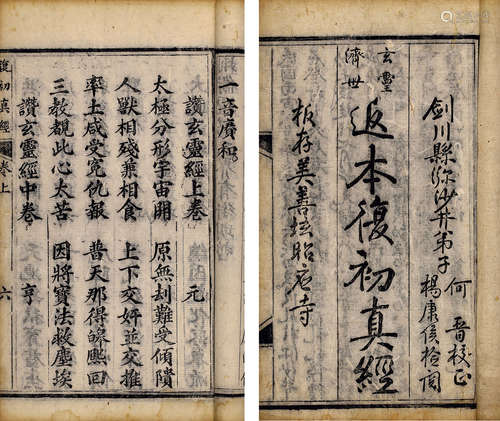 劍川縣弥沙井弟子
何晋校正
楊康侯檢閱
玄靈
濟世
返本復初真經
板存美善壇昭應寺
一音廣和
讚玄靈經上卷 元
太極分形宇宙開 原無刦難受傾隤
人獸相殘兼相食 上下交奸並交推
率土咸受冤仇報 普天那得皥熈回
三教觀此心太苦 因將寳法救塵埃
讚玄靈經中卷 亨
復初真經
卷上
六